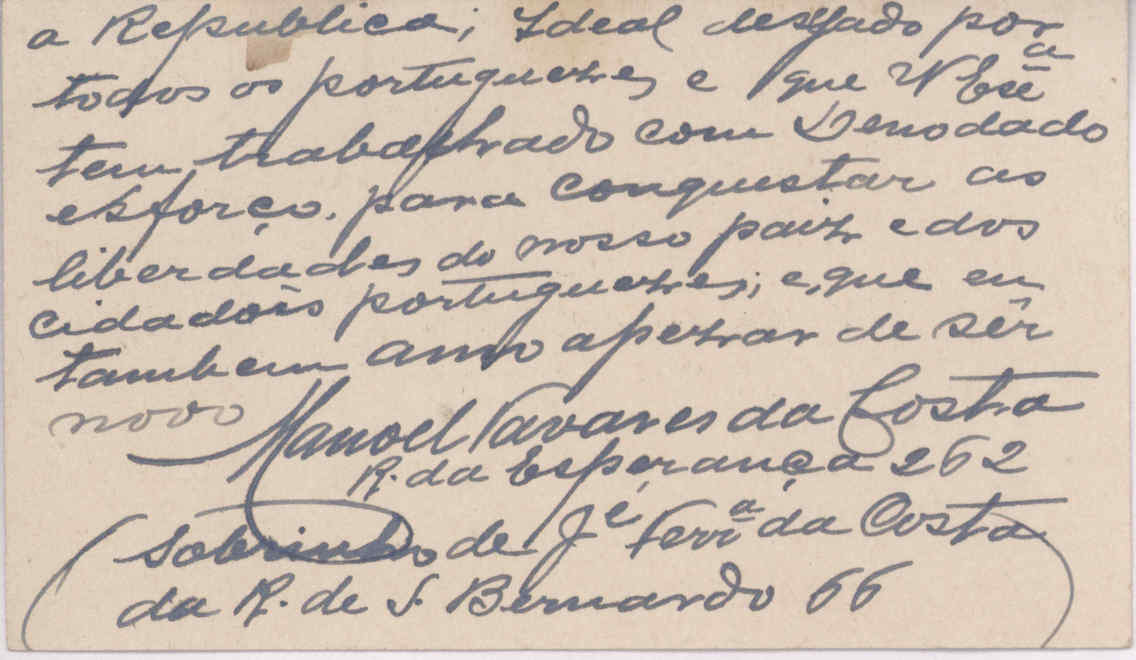 a Republica; Ideal desejado por
todos os portuguezes e que V Exª
tem trabalhado com Denodado
esforço. para conquestar as
liberdades do nosso paiz e dos
cidadois portuguezes; e, que eu
tambem amo apezar de sêr
novo Manoel Tavares da Costa
R. da Esperança 262
(Sobrinho de Jé Ferrª da Costa
da R. de S. Bernardo 66)